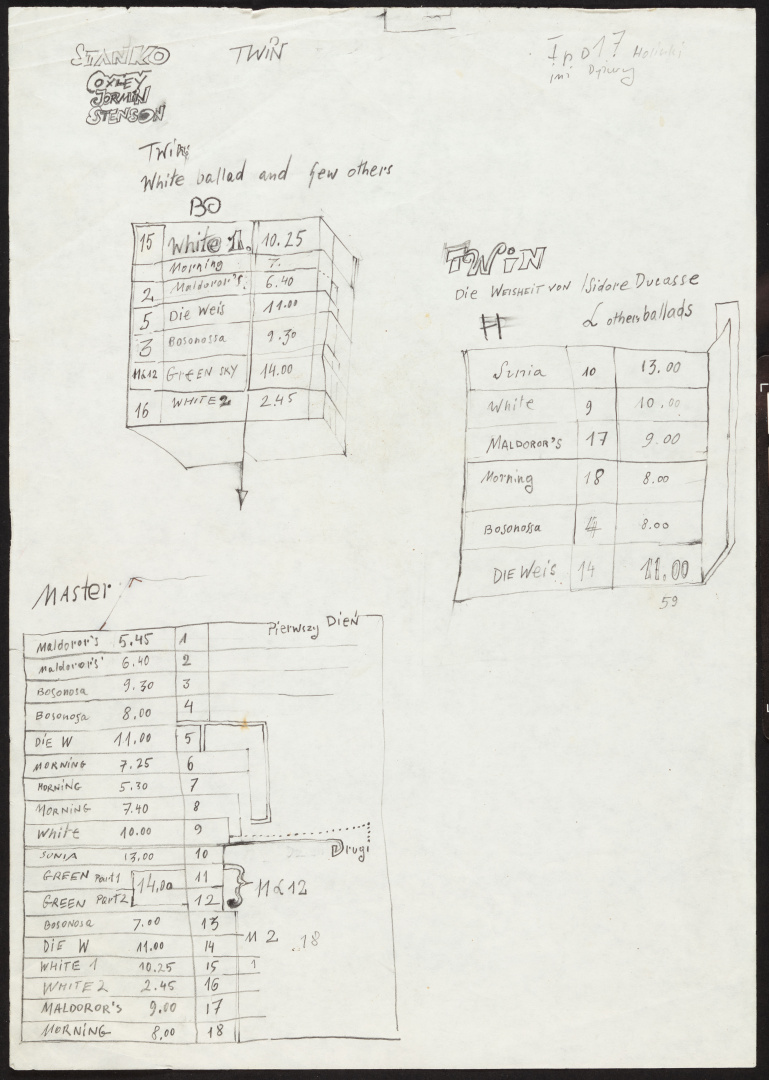 STANKO
OXLEY
JORMIN
STENSON
TWIN
Twin
White ballad and few others
BO
15 White 1. 10.25
Morning 7.
2 Maldoror's 6.40
5 Die Weis 11.00
3 Bosonossa 9.30
11&12 GREEN SKY 14.00
16 WHITE 2 2.45
TWIN
Die WEISHEIT VON Isidore Ducasse
& others ballads
Sunia 10 13.00
White 9 10.00
MALDOROR'S 17 9.00
Morning 18 8.00
Bosonossa 4 8.00
DIE Weis 14 11.00
59
MASTER
Pierwszy Dień
Maldoror's 5.45 1
Maldoror's 6.40 2
Bosonosa 9.30 3
Bosonosa 8.00 4
DIE W 11.00 5
MORNING 7.25 6
MORNING 5.30 7
MORNING 7.40 8
White 10.00 9
Drugi
SUNIA 13.00 10
GREEN Part 1 14.00 11
GREEN Part 2 12
11&12
Bosonosa 7.00 13
DIE W 11.00 14
M 2 18
WHITE 1 10.25 15 1
WHITE 2 2.45 16
MALDOROR'S 9.00 17
MORNING 8.00 18